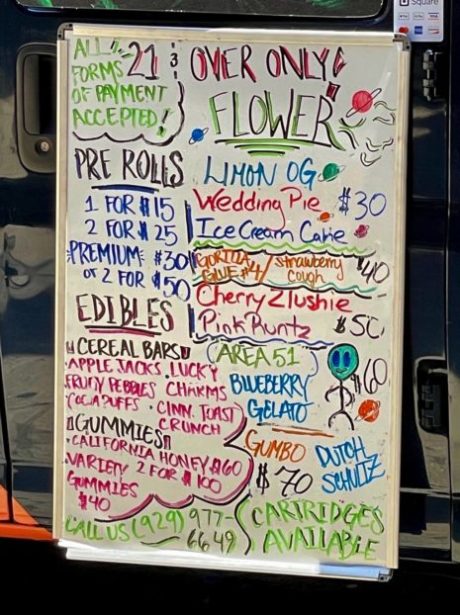 Square
ALL
FORMS
OF PAYMENT
ACCEPTED!
21 & OVER ONLY!
FLOWER
PRE ROLLS
1 FOR $15
2 FOR $25
PREMIUM $30
or 2 FOR $50
EDIBLES
CEREAL BARS
• APPLE JACKS • LUCKY
FRUITY PEBBLES CHARMS
• COCOA PUFFS • CINN. TOAST
CRUNCH
GUMMIES
• CALIFORNIA HONEY $60
• VARIETY 2 FOR $100
GUMMIES
$40
CALL US (929) 977-
6649
LIMON OG
Wedding Pie $30
Ice Cream Cake
GORILLA / Strawberry $40
GLUE #4 Cough
Cherry Zlushie
Pink Runtz $50
AREA 51
BLUEBERRY $60
GELATO
GUMBO DUTCH
$70 SCHULTZ
CARTRIDGES
AVAILABLE